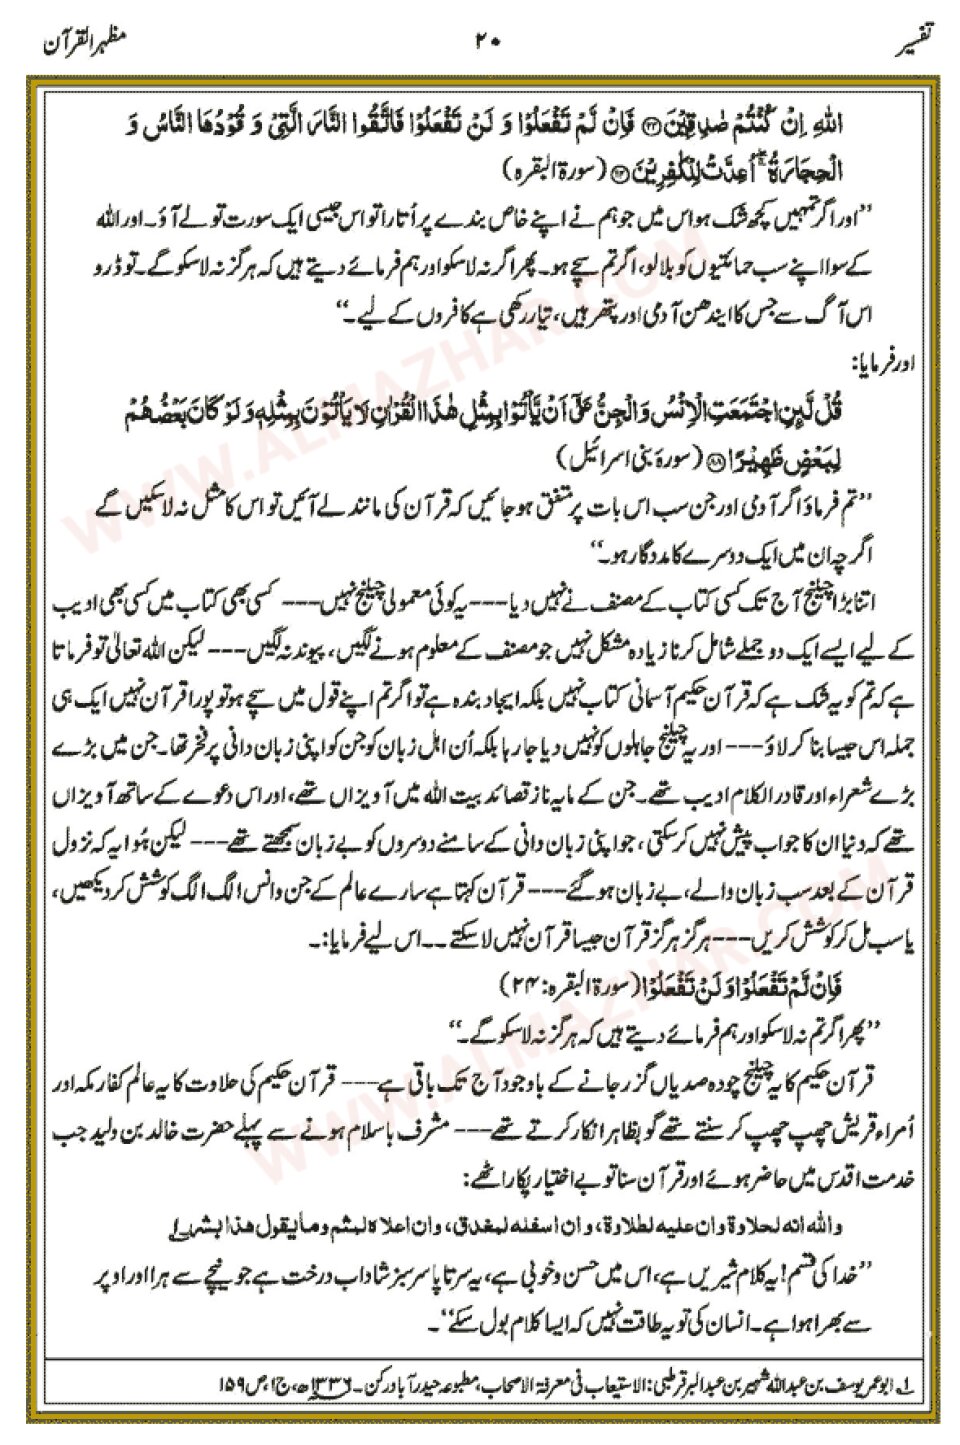 تفسیر ۲۰ مظہر القرآن
اللهِ اِنْ كُنْتُمْ صٰدِقِيْنَ ﴿۲۳﴾ فَاِنْ لَّمْ تَفْعَلُوْا وَ لَنْ تَفْعَلُوْا فَاتَّقُوا النَّارَ الَّتِيْ وَ قُوْدُهَا النَّاسُ وَ
الْحِجَارَةُ ۖ اُعِدَّتْ لِلْكٰفِرِيْنَ ﴿۲۴﴾ (سورۃ البقرہ)
’’اور اگر تمہیں کچھ شک ہو اس میں جو ہم نے اپنے خاص بندے پر اُتارا تو اس جیسی ایک سورت تو لے آؤ۔ اور اللہ
کے سوا اپنے سب حمائتیوں کو بلا لو، اگر تم سچے ہو۔ پھر اگر نہ لا سکو اور ہم فرمائے دیتے ہیں کہ ہرگز نہ لا سکو گے۔ تو ڈرو
اس آگ سے جس کا ایندھن آدمی اور پتھر ہیں، تیار رکھی ہے کافروں کے لیے۔‘‘
اور فرمایا:
قُلْ لَّىِٕنِ اجْتَمَعَتِ الْاِنْسُ وَ الْجِنُّ عَلٰٓى اَنْ يَّاْتُوْا بِمِثْلِ هٰذَا الْقُرْاٰنِ لَا يَاْتُوْنَ بِمِثْلِهٖ وَ لَوْ كَانَ بَعْضُهُمْ
لِبَعْضٍ ظَهِيْرًا ﴿۸۸﴾ (سورہ بنی اسرائیل)
’’تم فرماؤ اگر آدمی اور جن سب اس بات پر متفق ہو جائیں کہ قرآن کی مانند لے آئیں تو اس کا مثل نہ لا سکیں گے
اگرچہ ان میں ایک دوسرے کا مددگار ہو۔‘‘
اتنا بڑا چیلنج آج تک کسی کتاب کے مصنف نے نہیں دیا --- یہ کوئی معمولی چیلنج نہیں --- کسی بھی کتاب میں کسی بھی ادیب
کے لیے ایسے ایک دو جملے شامل کرنا زیادہ مشکل نہیں جو مصنف کے معلوم ہونے لگیں، پیوند نہ لگیں --- لیکن اللہ تعالیٰ تو فرماتا
ہے کہ تم کو یہ شک ہے کہ قرآن حکیم آسمانی کتاب نہیں بلکہ ایجاد بندہ ہے تو اگر تم اپنے قول میں سچے ہو تو پورا قرآن نہیں ایک ہی
جملہ اس جیسا بنا کر لاؤ --- اور یہ چیلنج جاہلوں کو نہیں دیا جا رہا بلکہ اُن اہل زبان کو جن کو اپنی زبان دانی پر فخر تھا۔ جن میں بڑے
بڑے شعراء اور قادر الکلام ادیب تھے۔ جن کے مایہ ناز قصائد بیت اللہ میں آویزاں تھے، اور اس دعوے کے ساتھ آویزاں
تھے کہ دنیا ان کا جواب پیش نہیں کر سکتی، جو اپنی زبان دانی کے سامنے دوسروں کو بے زبان سمجھتے تھے --- لیکن ہُوا یہ کہ نزول
قرآن کے بعد سب زبان والے، بے زبان ہو گئے --- قرآن کہتا ہے سارے عالم کے جن و انس الگ الگ کوشش کر دیکھیں،
یا سب مل کر کوشش کریں --- ہرگز ہرگز قرآن جیسا قرآن نہیں لا سکتے۔۔ اس لیے فرمایا:۔
فَاِنْ لَّمْ تَفْعَلُوْا وَ لَنْ تَفْعَلُوْا (سورۃ البقرہ: ۲۴)
’’پھر اگر تم نہ لا سکو اور ہم فرمائے دیتے ہیں کہ ہرگز نہ لا سکو گے۔‘‘
قرآن حکیم کا یہ چیلنج چودہ صدیاں گزر جانے کے باوجود آج تک باقی ہے --- قرآن حکیم کی حلاوت کا یہ عالم کفار مکہ اور
اُمراء قریش چھپ چھپ کر سنتے تھے گو بظاہر انکار کرتے تھے --- مشرف با سلام ہونے سے پہلے حضرت خالد بن ولید جب
خدمت اقدس میں حاضر ہوئے اور قرآن سنا تو بے اختیار پکار اٹھے:
والله انه لحلاوة وان عليه لطلاوة، وان اسفله لمغدق، وان اعلاه لمثم وما يقول هذا بشر۱
’’خدا کی قسم! یہ کلام شیریں ہے، اس میں حسن و خوبی ہے، یہ سرتا پا سرسبز شاداب درخت ہے جو نیچے سے ہرا اور اوپر
سے بھرا ہوا ہے۔ انسان کی تو یہ طاقت نہیں کہ ایسا کلام بول سکے‘‘۔
۱۔ ابو عمر یوسف بن عبد اللہ شہیر بن عبد البر قرطبی: الاستیعاب فی معرفۃ الاصحاب، مطبوعہ حیدر آباد دکن۔ ۱۳۳۶ھ، ج ۱، ص ۱۵۹
WWW.ALMAZHAR.COM
WWW.ALMAZHAR.COM